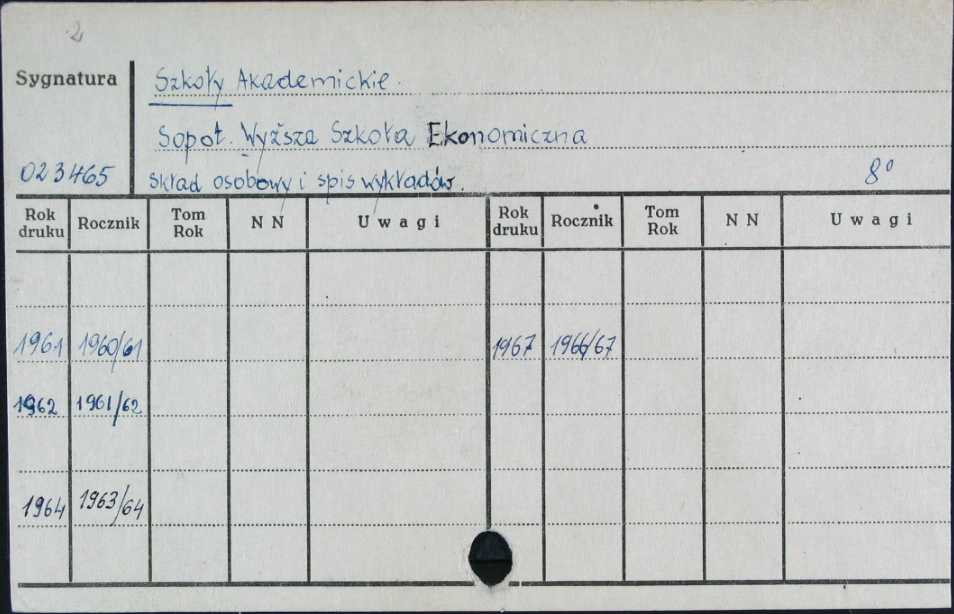 2
Sygnatura
Szkoły Akademickie.
Sopot. Wyższa Szkoła Ekonomiczna
023465
Skład osobowy i spis wykładów.
8°
Rok druku Rocznik Tom Rok N N Uwagi Rok druku Rocznik Tom Rok N N Uwagi
1961 1960/61 1967 1966/67
1962 1961/62
1964 1963/64